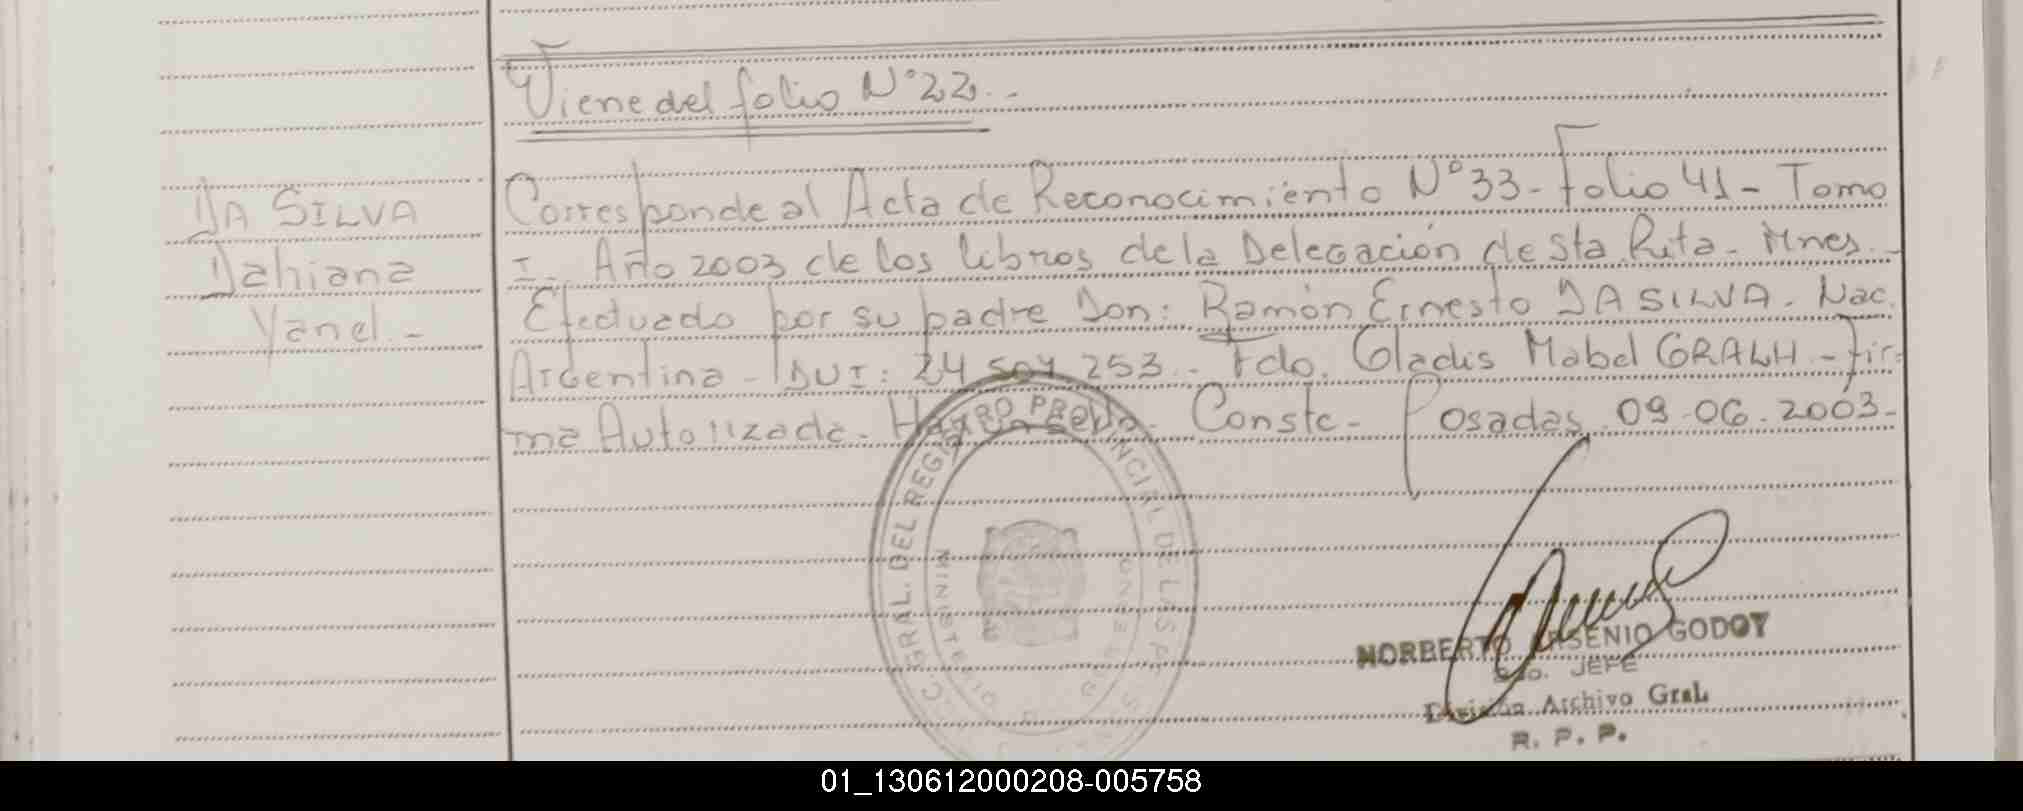 Viene del folio N° 22.-
DA SILVA
Dahiana
Yanel.-
Corresponde al Acta de Reconocimiento N° 33 - Folio 41 - Tomo
I - Año 2003 de los libros de la Delegación de Sta Rita - Mnes.-
Efectuado por su padre Don: Ramón Ernesto DA SILVA - Nac.
Argentina - DUI: 24.504.253.- Fdo. Gladis Mabel GRALH - Fir-
ma Autorizada - Conste - Posadas 09-06-2003-
GRAL. DEL REGISTRO PROVINCIAL DE LAS PERSONAS
MINISTERIO DE GOBIERNO
NORBERTO ARSENIO GODOY
Sdo. JEFE
División Archivo Gral.
R. P. P.
01_130612000208-005758